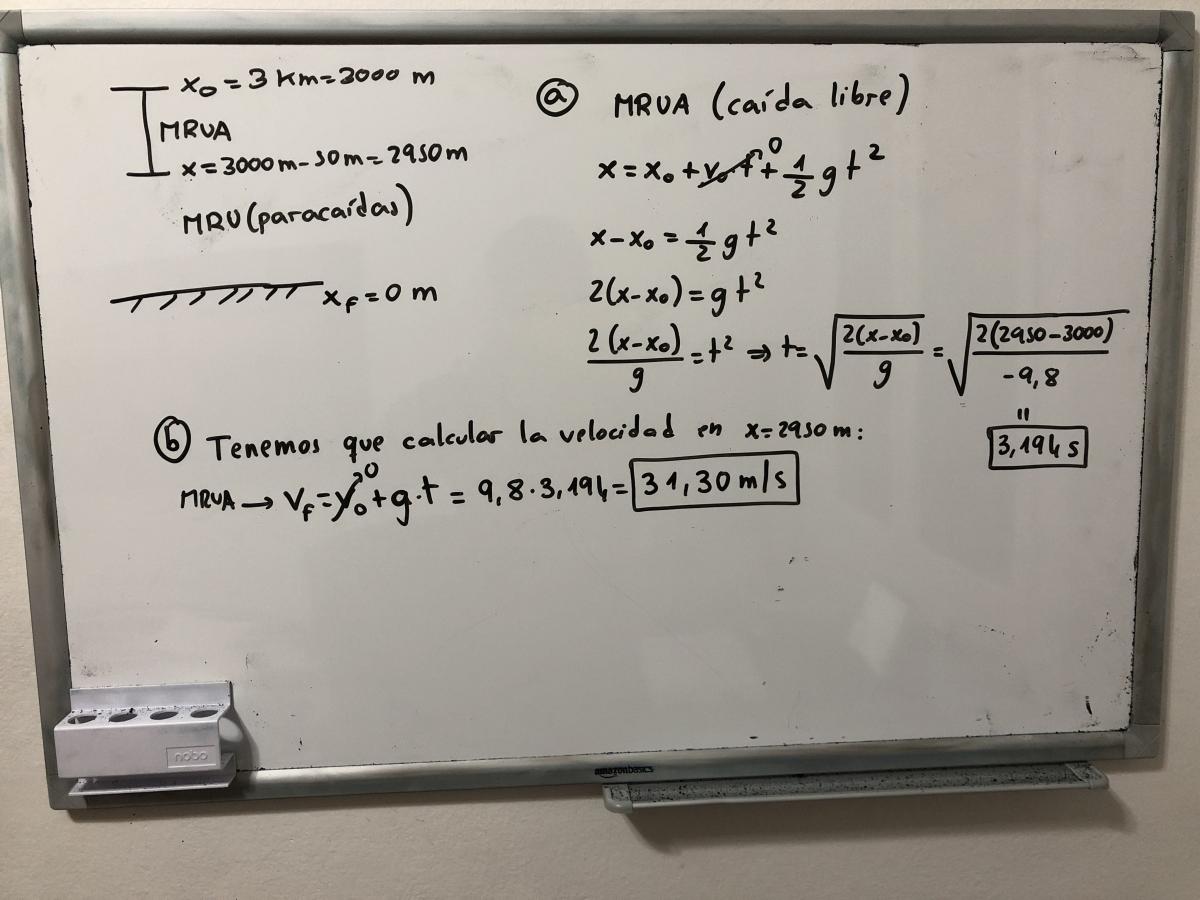 x₀ = 3 Km = 3000 m
MRUA
x = 3000 m - 50 m = 2950 m
MRU (paracaídas)
x_f = 0 m
ⓐ MRUA (caída libre)
x = x₀ + v₀ t⁰ + 1/2 g t²
x - x₀ = 1/2 g t²
2(x - x₀) = g t²
2(x - x₀)/g = t² ⇒ t = √(2(x - x₀)/g) = √(2(2950 - 3000)/-9,8)
=
3,194 s
ⓑ Tenemos que calcular la velocidad en x = 2950 m:
MRUA → v_f = v₀⁰ + g · t = 9,8 · 3,194 = 31,30 m/s
nobo
amazonbasics